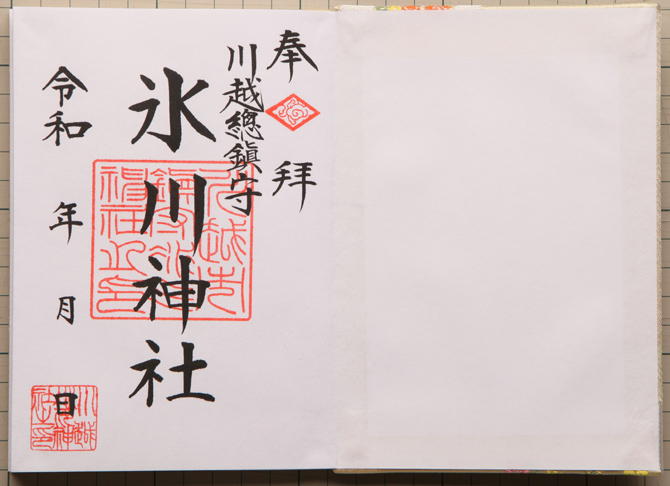 奉拜
川越總鎮守
氷川神社
令和 年 月 日